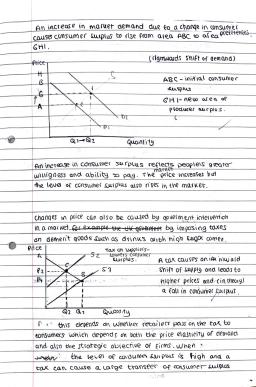 An increase in market demand due to a change in consumer preferences
causes consumer surplus to rise from area ABC to area
GHI.
(rightwards shift of demand)
Price
H
B
G
A
C
I
S
D1
D2
Q1→Q2
Quantity
ABC - initial consumer
surplus
GHI - new area of
producer surplus.
An increase in consumer surplus reflects people's greater
willingness and ability to pay. The market price increases but
the level of consumer surplus also rises in the market.
Changes in price can also be caused by government intervention
in a market. by imposing taxes
on demerit goods such as drinks with high sugar content.
Price
tax on suppliers-
lowers consumer
surplus.
S2
S1
P2
P1
Q2 Q1
Quantity
A tax causes an inward
shift of supply and leads to
higher prices and
a fall in consumer surplus.
this depends on whether retailers pass on the tax to
consumers which depends on both the price elasticity of demand
and also the strategic objective of firms. When
the level of consumer surplus is high and a
tax can cause a large transfer of consumer surplus